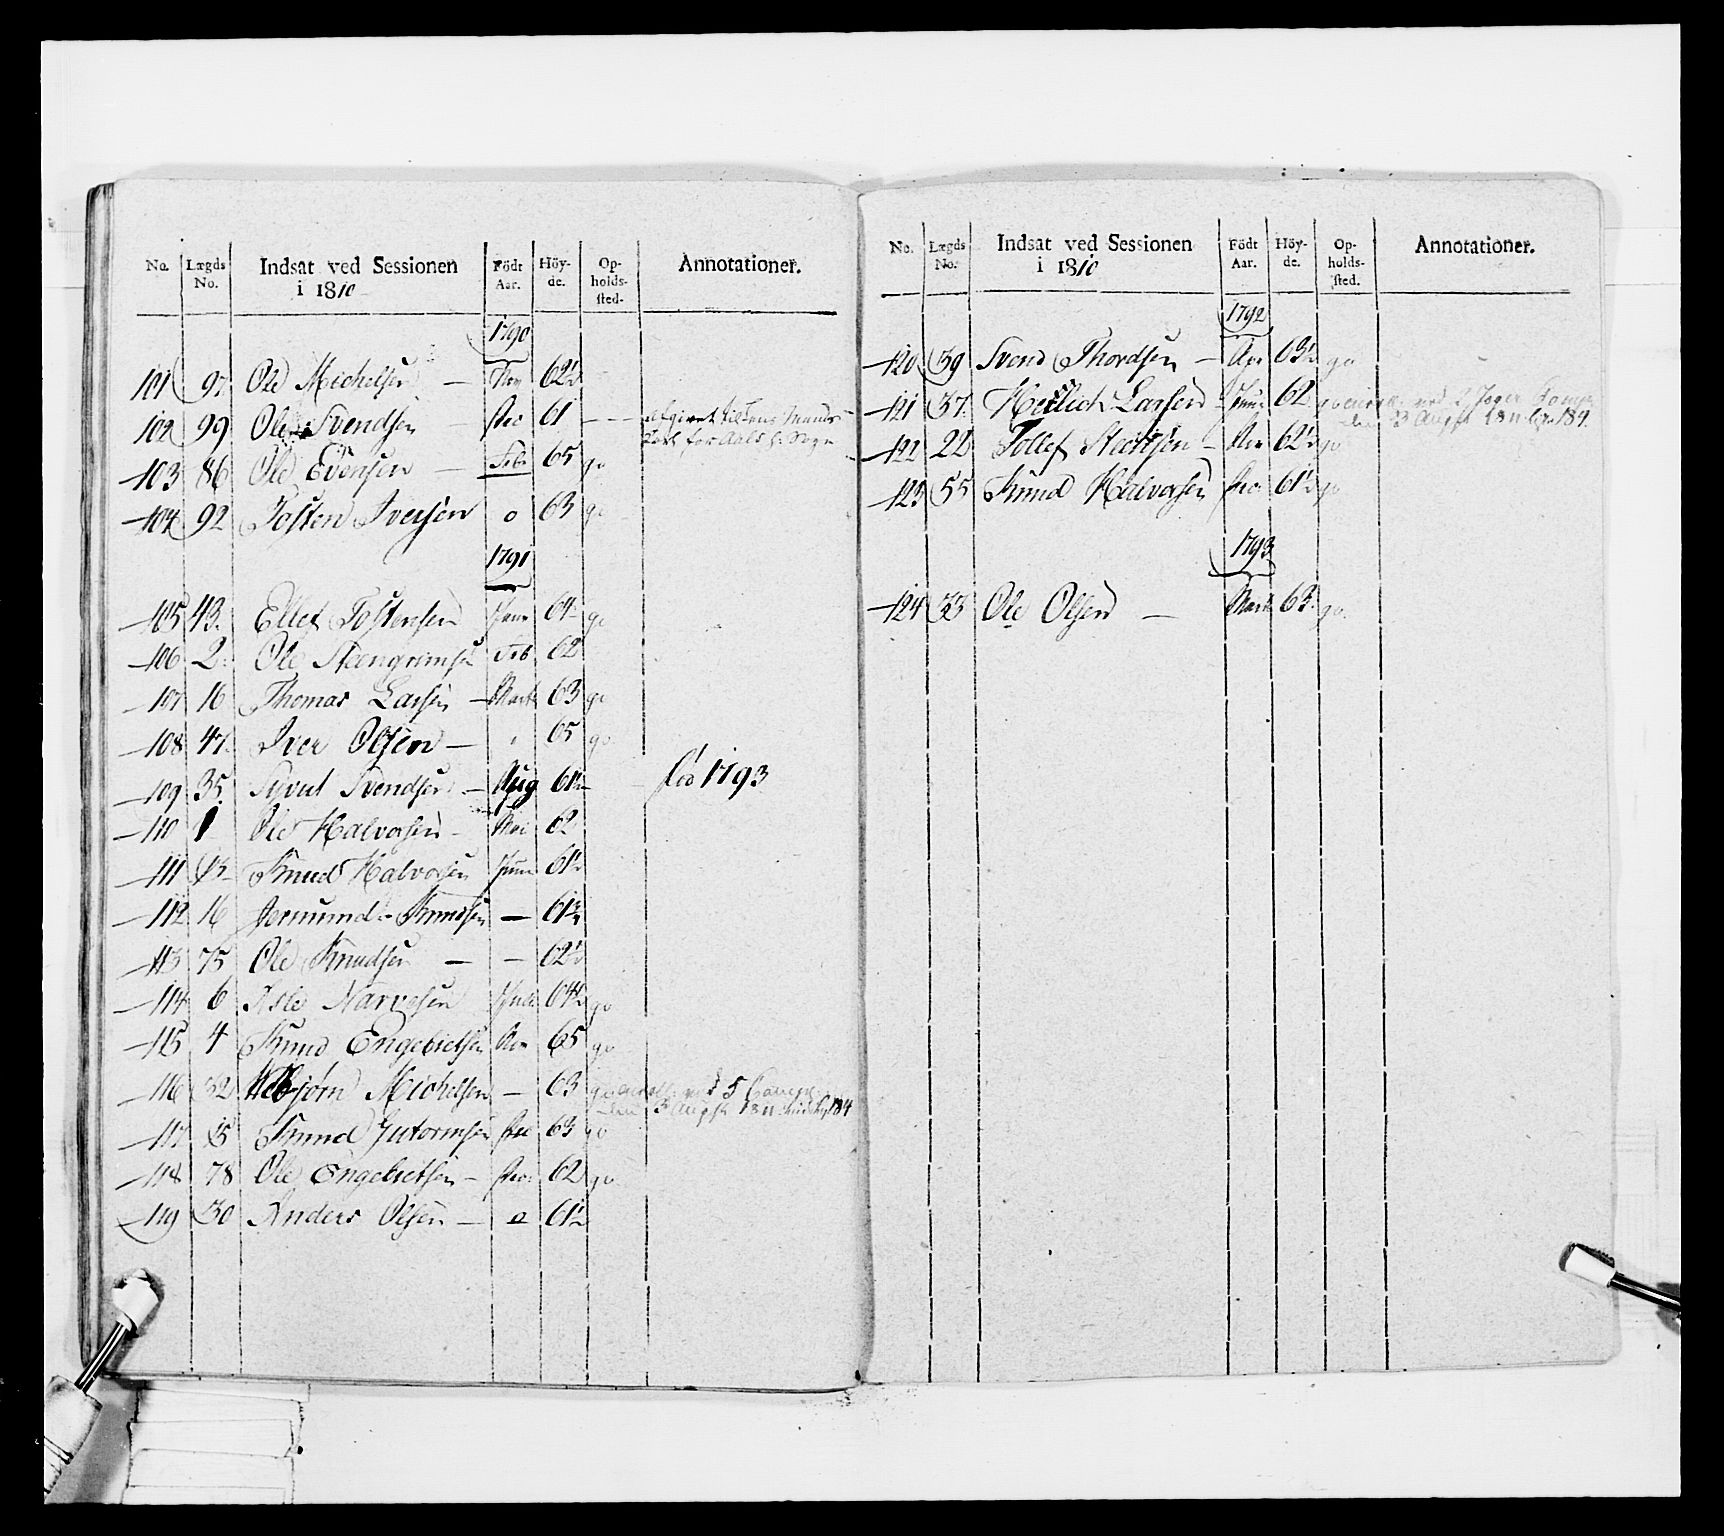 No. Lægds No. Indsat ved Sessionen i 1810 Födt Aar. Höyde. Opholdssted. Annotationer.
1790
101 97 Ole Michelsen — Nov 62½
102 99 Ole Svendsen Dec 61 — — afgivet til
for Aals Sogn
103 86 Ole Evensen — Feb 65 go
104 92 Tosten Iversen o 63 go
1791
105 43. Ellef Tostensen Janr 64 go
106 2. Ole Steengrimsen Feb 62
107 16 Thomas Larsen — Marts 63 go
108 47. Iver Olsen — 65 go
109 35. Syvut Svendsen — Aug 61½ — fød 1793
110 1 Ole Halvorsen — Mai 62
111 13 Knud Halvorsen Juni 61½
112 16 Jermund Knudsen — 61¾
113 75 Ole Knudsen — — 62½
114 6 Asle Narvesen Juli 64½ go
115 4 Knud Engebretsen Nov 65 go
116 32 Webjørn Michelsen — 63 go ved 5 Comp
den 3 Augst 1811 184
117 15 Knud Gutormsen Dec 63 go
118 78 Ole Engebretsen — Dec. 62 go
119 30 Anders Olsen — o 61½
No. Lægds No. Indsat ved Sessionen i 1810 Födt Aar. Höyde. Opholdssted. Annotationer.
1792
120 39 Svend Thordsen — Apr 63½ go
121 37. Herlich Larsen Janr 62 go ved 2 Jæger Comp
den 3 Augst 1811 184.
122 22 Tollef Steensen — Nov 62½ go
123 55 Knud Halvorsen Dec. 61½ go
1793
124 33 Ole Olsen — Marts 63. go.